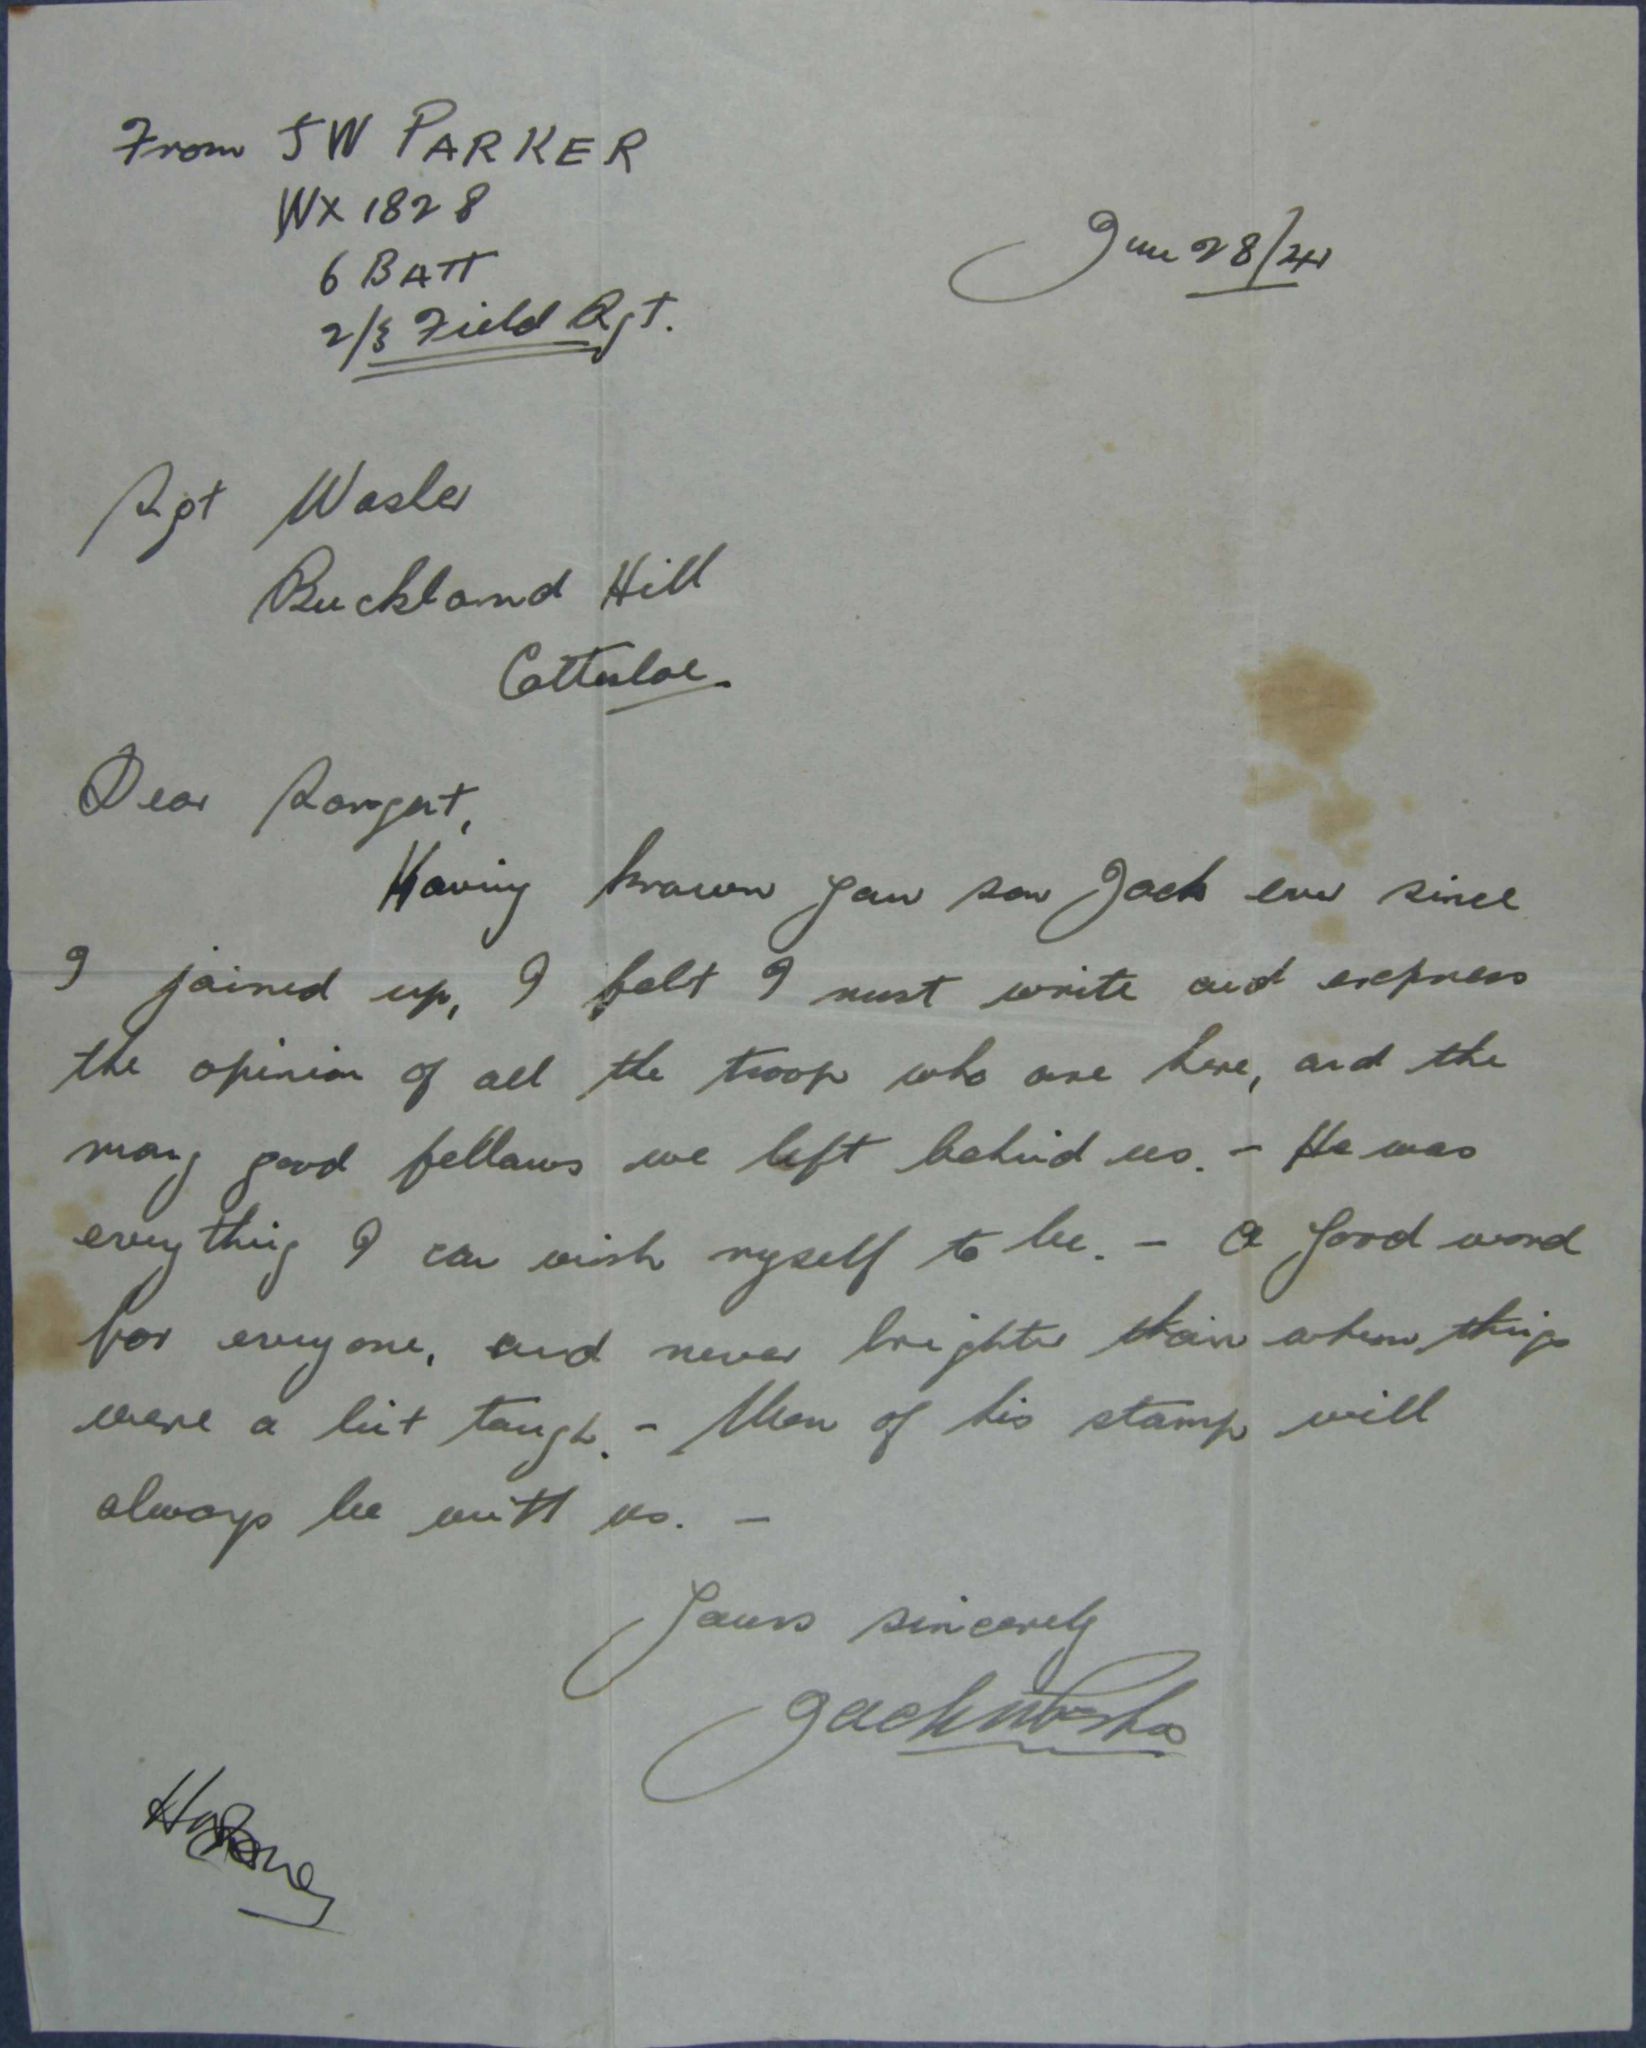 From JW PARKER
WX 1828
6 BATT
2/3 Field Rgt.
June 28/41
Sgt Wasley
Buckland Hill
Cottesloe.
Dear Sargent,
Having known your son Jack ever since
I joined up, I felt I must write and express
the opinion of all the troop who are here, and the
many good fellows we left behind us. - He was
everything I can wish myself to be. - A good word
for everyone, and never brighter than when things
were a bit tough. - Men of his stamp will
always be with us. -
Yours sincerely
Jack